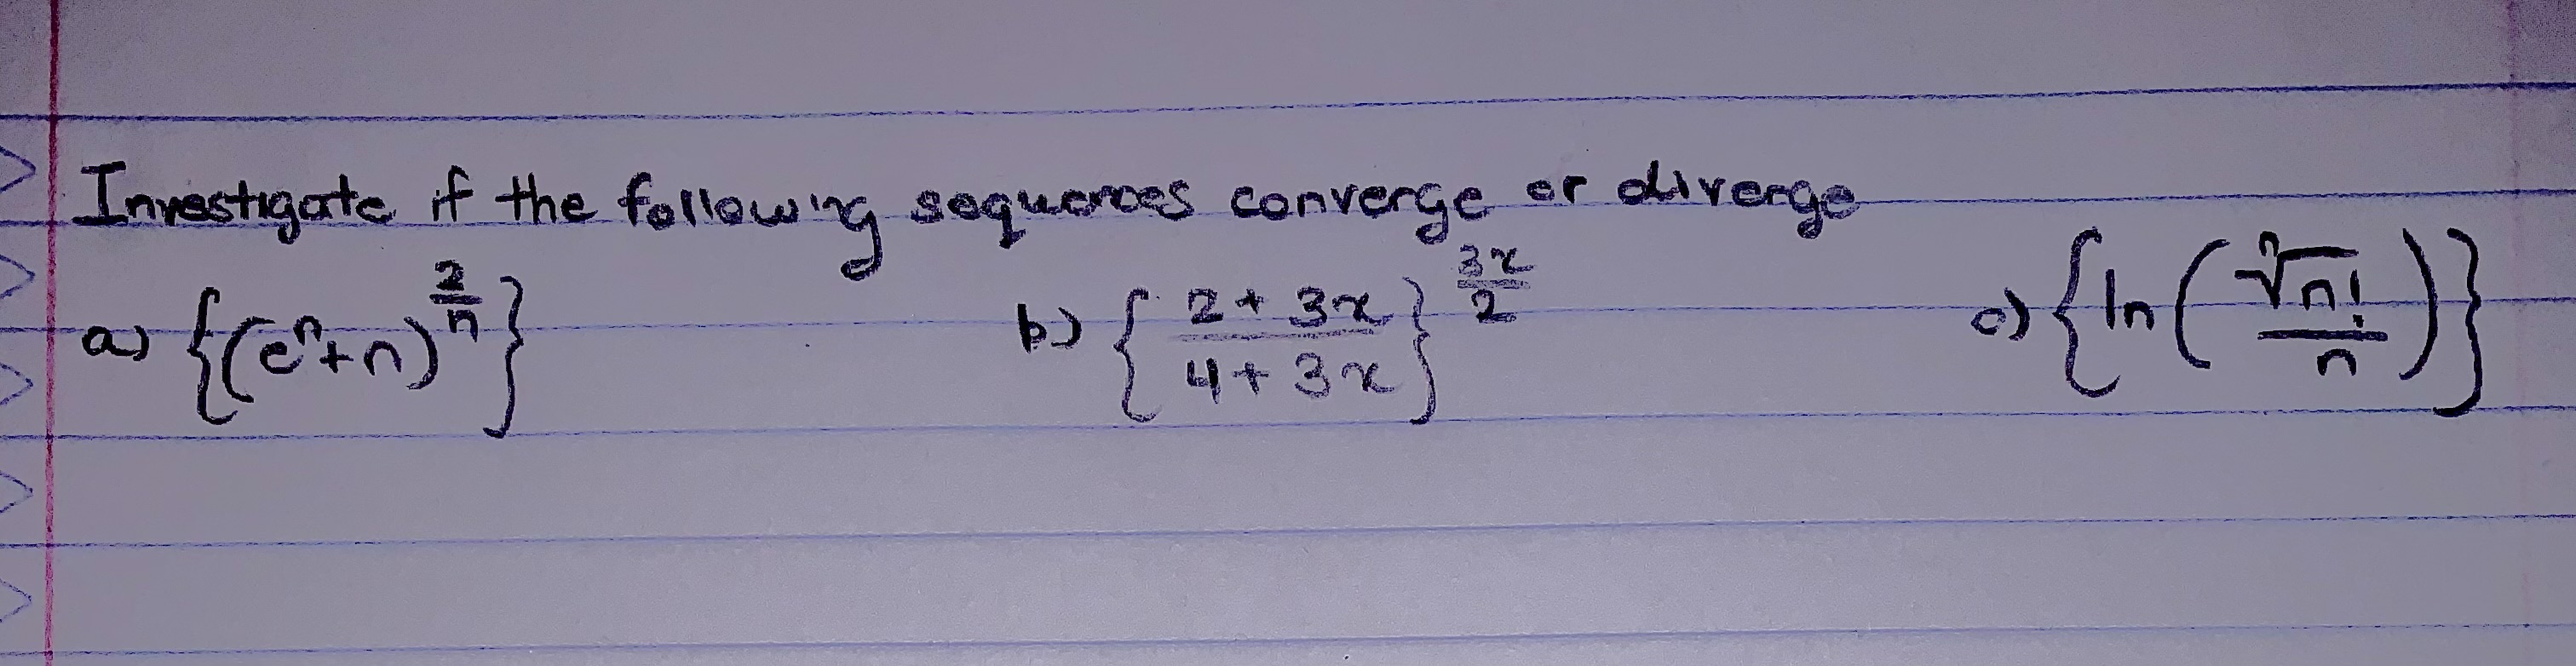 Investigate if the following sequences converge or diverge
a) {(eⁿ+n)^(2/n)} b) {(2 + 3x)/(4 + 3x)}^(3x/2) c) {ln(ⁿ√n!/n)}